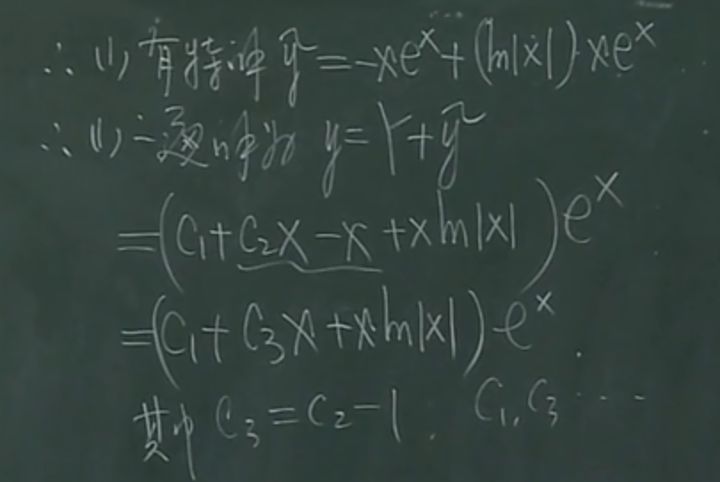 ∴ (1) 有特解 ỹ = -xe^x + (ln|x|)·xe^x
∴ (1) 通解为 y = Y + ỹ
= (C₁ + C₂x - x + x ln|x|) e^x
= (C₁ + C₃x + x ln|x|)·e^x
其中 C₃ = C₂ - 1. C₁, C₃ ...